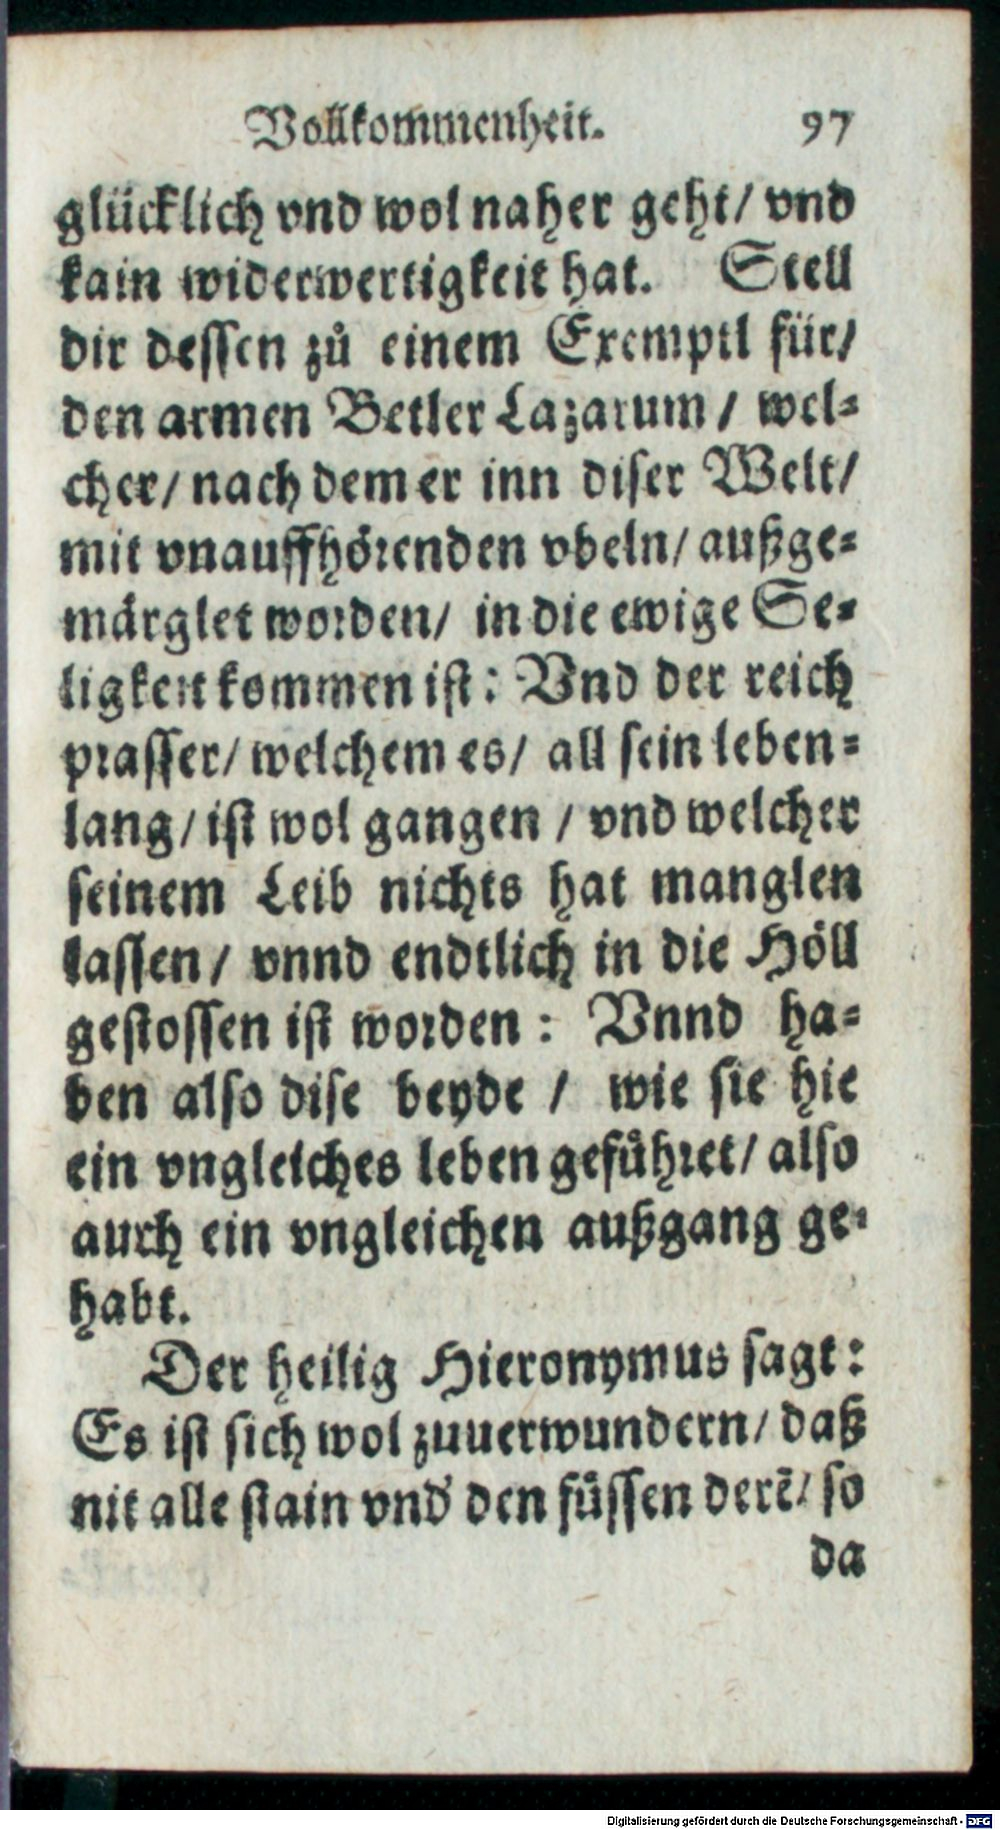 Vollkommenheit. 97
glücklich vnd wol naher geht/ vnd
kain widerwertigkeit hat. Stell
dir dessen zů einem Exemptl für/
den armen Betler Lazarum / wel-
cher/ nach dem er inn diser Welt/
mit vnauffhörenden vbeln/ außge-
märglet worden/ in die ewige Se-
ligkeit kommen ist: Vnd der reich
prasser/ welchem es/ all sein leben-
lang/ ist wol gangen / vnd welcher
seinem Leib nichts hat manglen
lassen/ vnnd endtlich in die Höll
gestossen ist worden: Vnnd ha-
ben also dise beyde / wie sie hie
ein vngleiches leben geführet/ also
auch ein vngleichen außgang ge-
habt.
Der heilig Hieronymus sagt:
Es ist sich wol zuuerwundern/ daß
nit alle stain vnd' den füssen derē/ so
da
Digitalisierung gefördert durch die Deutsche Forschungsgemeinschaft - DFG